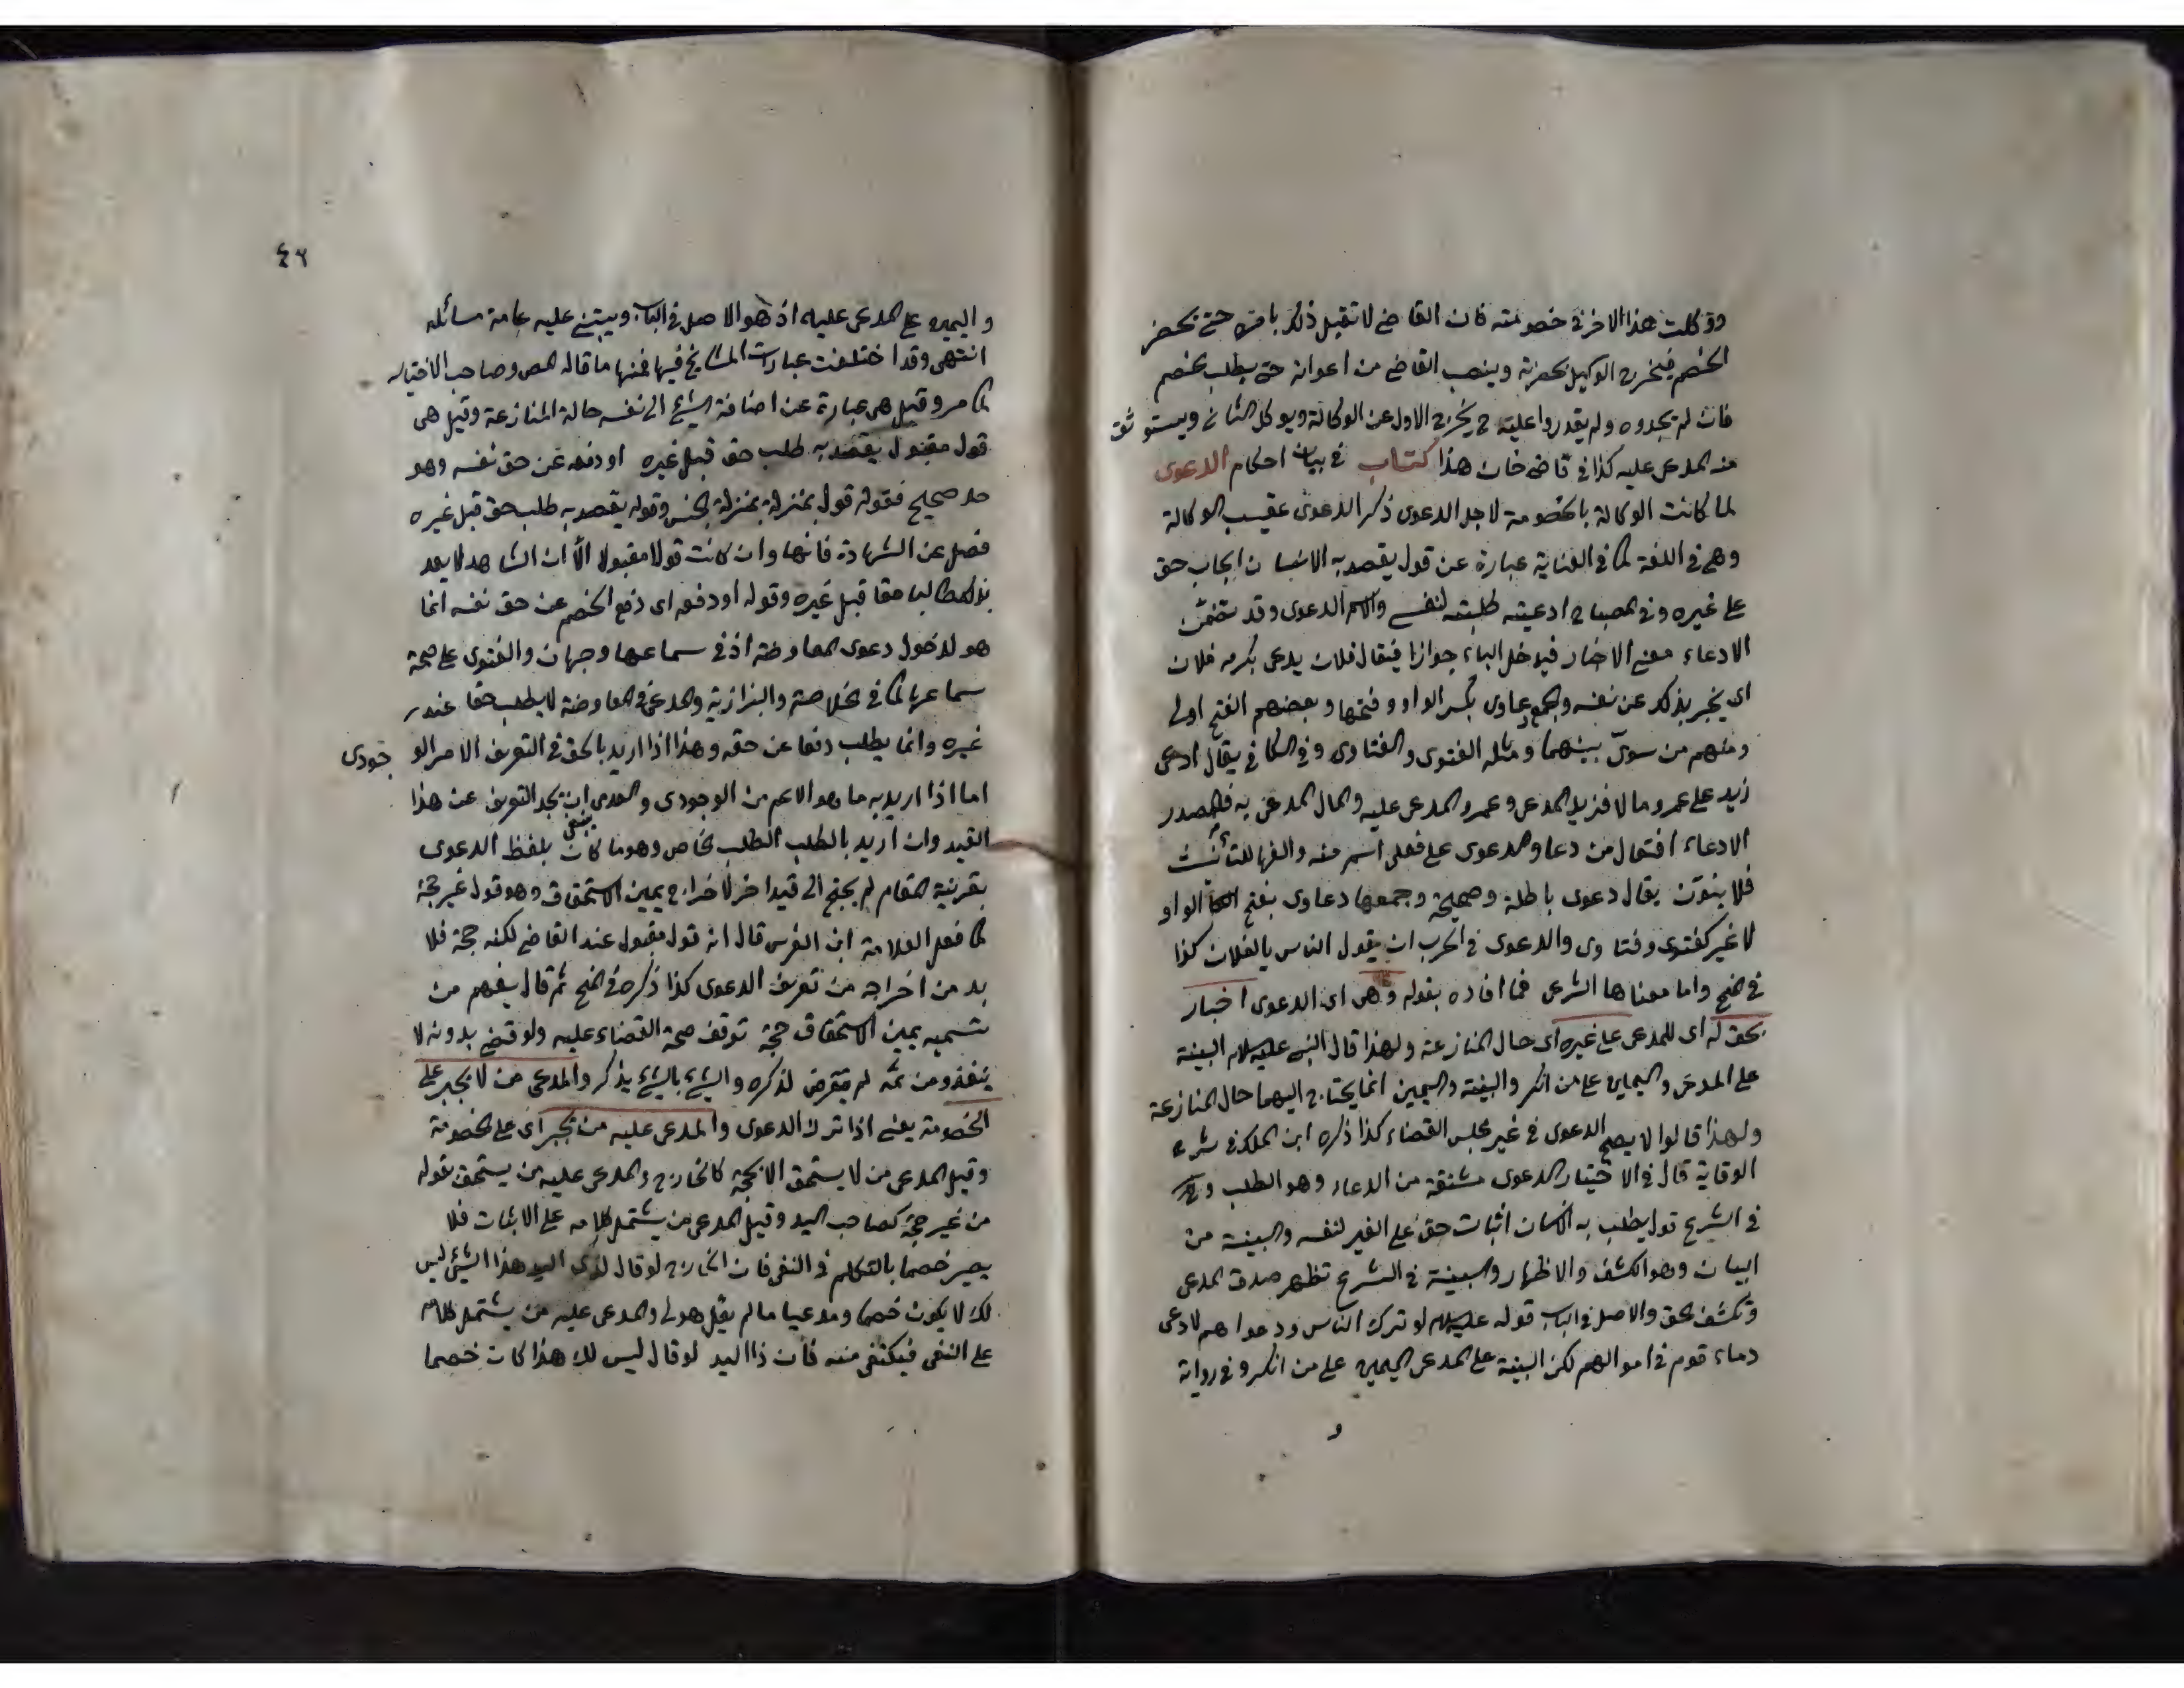 ووكلت هذا الاخر في خصومته فان القاضي لا تقبل ذلك حتى يحضر
الخصم فيخرج الوكيل بحضرته وينصب القاضي من اعوانه حتى يطلب الخصم
فان لم يجدوه ولم يقدروا عليه ح يخرج الاول عن الوكالة ويوكل الثاني ويستوثق
منه المدعى عليه كذا في قاضي خان هذا كتاب في بيان احكام الدعوى
لما كانت الوكالة بالخصومة لاجل الدعوى ذكر الدعوى عقيب الوكالة
وهي في اللغة كما في العناية عبارة عن قول يقصد به الانسان ايجاب حق
على غيره وفي المصباح ادعيته طلبته لنفسي والاسم الدعوى وقد يتضمن
الادعاء معنى الاخبار فيدخل الباء جوازا فيقال فلان يدعى بكرم فلان
اى يخبر بذلك عن نفسه والجمع دعاوى بكسر الواو وفتحها وبعضهم الفتح اولى
ومنهم من سوى بينهما ومثله الفتوى والفتاوى وفي الكافي يقال ادعى
زيد على عمرو مالا فزيد المدعى وعمرو المدعى عليه والمال المدعى به والمصدر
الادعاء افتعال من دعا والدعوى على فعلى اسم منه والفها للتأنيث
فلا ينون يقال دعوى باطلة وصحيحة وجمعها دعاوى بفتح الواو
لا غير كفتوى وفتاوى والدعوى في الحرب ان يقول الناس يالفلان كذا
في المنح واما معناها الشرعى فما افاده بقوله وهى اى الدعوى اخبار
بحق له اى للمدعى على غيره اى حال المنازعة ولهذا قال النبى عليه السلام البينة
على المدعى واليمين على من انكر والبينة واليمين انما يحتاج اليهما حال المنازعة
ولهذا قالوا لا يصح الدعوى في غير مجلس القضاء كذا ذكره ابن الملك في شرح
الوقاية قال في الاختيار الدعوى مشتقة من الدعاء وهو الطلب وهى
في الشرع قول يطلب به الانسان اثبات حق على الغير لنفسه والبينة من
البيان وهو الكشف والاظهار والبينة في الشرع تظهر صدق المدعى
وتكشف الحق والاصل في الباب قوله عليه السلام لو ترك الناس ودعواهم لادعى
دماء قوم في اموالهم لكن البينة على المدعى اليمين على من انكر وفي رواية
و
٤٦
واليمين على المدعى عليه اذ هو الاصل في الباب ويبتنى عليه عامة مسائله
انتهى وقد اختلفت عبارات المشايخ فيها فمنها ما قاله المص وصاحب الاختيار
كما مر وقيل هى عبارة عن اضافة الشئ الى نفسه حالة المنازعة وقيل هى
قول مقبول يقصد به طلب حق قبل غيره او دفعه عن حق نفسه وهو
حد صحيح فقوله قول بمنزلة بمنزلة الجنس وقوله يقصد به طلب حق قبل غيره
فصل عن الشهادة فانها وان كانت قولا مقبولا الا ان الشاهد لا يعد
بذلك طالبا حقا قبل غيره وقوله او دفعه اى دفع الخصم عن حق نفسه انما
هو لدخول دعوى المعارضة اذ في سماعها وجهان والفتوى على صحة
سماعها كما في الخلاصة والبزازية والمدعى في المعارضة لا يطلب حقا عند
غيره وانما يطلب دفعا عن حقه وهذا اذا اريد بالحق في التعريف الامر الوجودى
اما اذا اريد به ما هو الاعم من الوجودى والعدمى ينبغى ان يجرد التعريف عن هذا
القيد وان اريد بالطلب الطلب الخاص وهو ما كان بلفظ الدعوى
بقرينة المقام لم يحتج الى قيد اخر لاخراج يمين الاستحقاق وهو قول غير حجة
كما فعل العلامة ابن الغرس قال انه قول مقبول عند القاضي لكنه حجة فلا
بد من اخراجه من تعريف الدعوى كذا ذكره في المنح ثم قال يفهم من
تسميه يمين الاستحقاق حجة توقف صحة القضاء عليه ولو قضى بدونه لا
ينفذ ومن ثمه لم يتعرض لذكره والشئ بالشئ يذكر والمدعى من لا يجبر على
الخصومة يعنى اذا ترك الدعوى والمدعى عليه من يجبر اى على الخصومة
وقيل المدعى من لا يستحق الا بحجة كالخارج والمدعى عليه من يستحق بقوله
من غير حجة كصاحب اليد وقيل المدعى من يشتمل كلامه على الاثبات فلا
يصير خصما بالتكلم في النفى فان الخارج لو قال لذى اليد هذا الشئ ليس
لك لا يكون خصما ومدعيا ما لم يقل هو لى والمدعى عليه من يشتمل كلامه
على النفى فيكتفى منه فان ذا اليد لو قال ليس لك هذا كان خصما